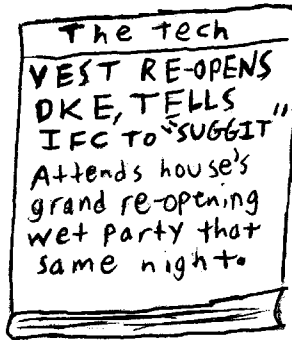 The tech
VEST RE-OPENS
DKE, TELLS
IFC TO "SUGGIT"
Attends house's
grand re-opening
wet party that
same night.